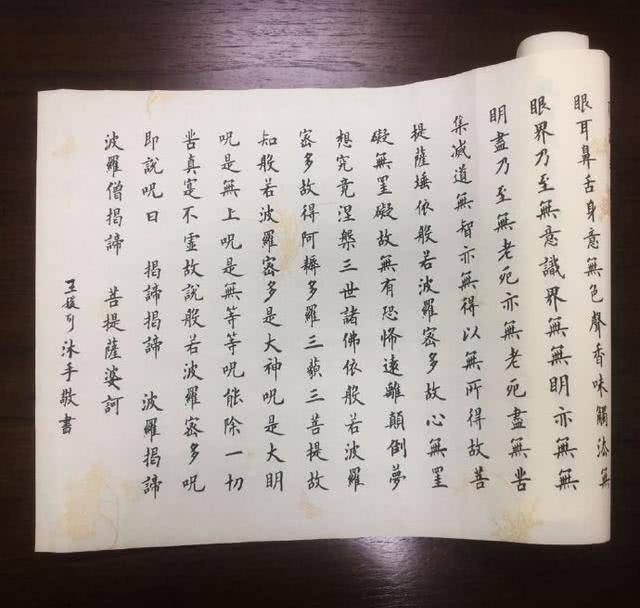 眼耳鼻舌身意無色聲香味觸法無
眼界乃至無意識界無無明亦無無
明盡乃至無老死亦無老死盡無苦
集滅道無智亦無得以無所得故菩
提薩埵依般若波羅密多故心無罣
礙無罣礙故無有恐怖遠離顛倒夢
想究竟涅槃三世諸佛依般若波羅
密多故得阿耨多羅三藐三菩提故
知般若波羅密多是大神呪是大明
呪是無上呪是無等等呪能除一切
苦真寔不虛故說般若波羅密多呪
即說呪曰 揭諦揭諦 波羅揭諦
波羅僧揭諦 菩提薩婆訶
王沐手敬書